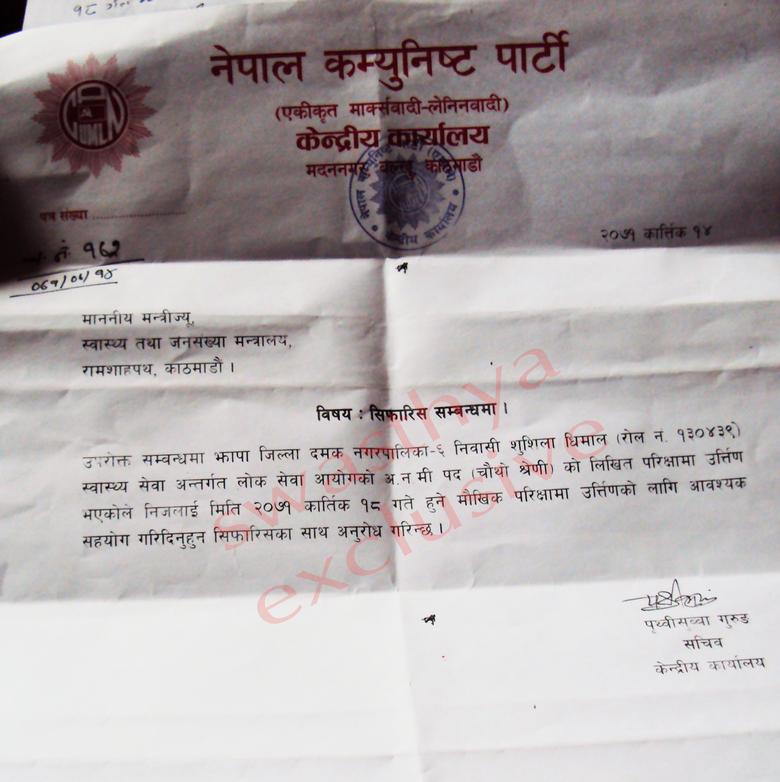 १८
नेपाल कम्युनिष्ट पार्टी
(एकीकृत मार्क्सवादी-लेनिनवादी)
केन्द्रीय कार्यालय
मदननगर बल्खु काठमाडौं
पत्र संख्या ........................
नं. १६२
०७१/०७/१४
२०७१ कार्त्तिक १४
माननीय मन्त्रीज्यू,
स्वास्थ्य तथा जनसंख्या मन्त्रालय,
रामशाहपथ, काठमाडौं ।
विषय : सिफारिस सम्बन्धमा ।
उपरोक्त सम्बन्धमा झापा जिल्ला दमक नगरपालिका-६ निवासी शुशिला धिमाल (रोल नं. १३०४३९)
स्वास्थ्य सेवा अन्तर्गत लोक सेवा आयोगको अ.न.मी पद (चौथो श्रेणी) को लिखित परिक्षामा उर्त्तिण
भएकोले निजलाई मिति २०७१ कार्तिक १८ गते हुने मौखिक परिक्षामा उर्त्तिणको लागि आवश्यक
सहयोग गरिदिनुहुन सिफारिसका साथ अनुरोध गरिन्छ ।
swasthya
exclusive
पृथ्वीसुब्बा गुरुङ
सचिव
केन्द्रीय कार्यालय